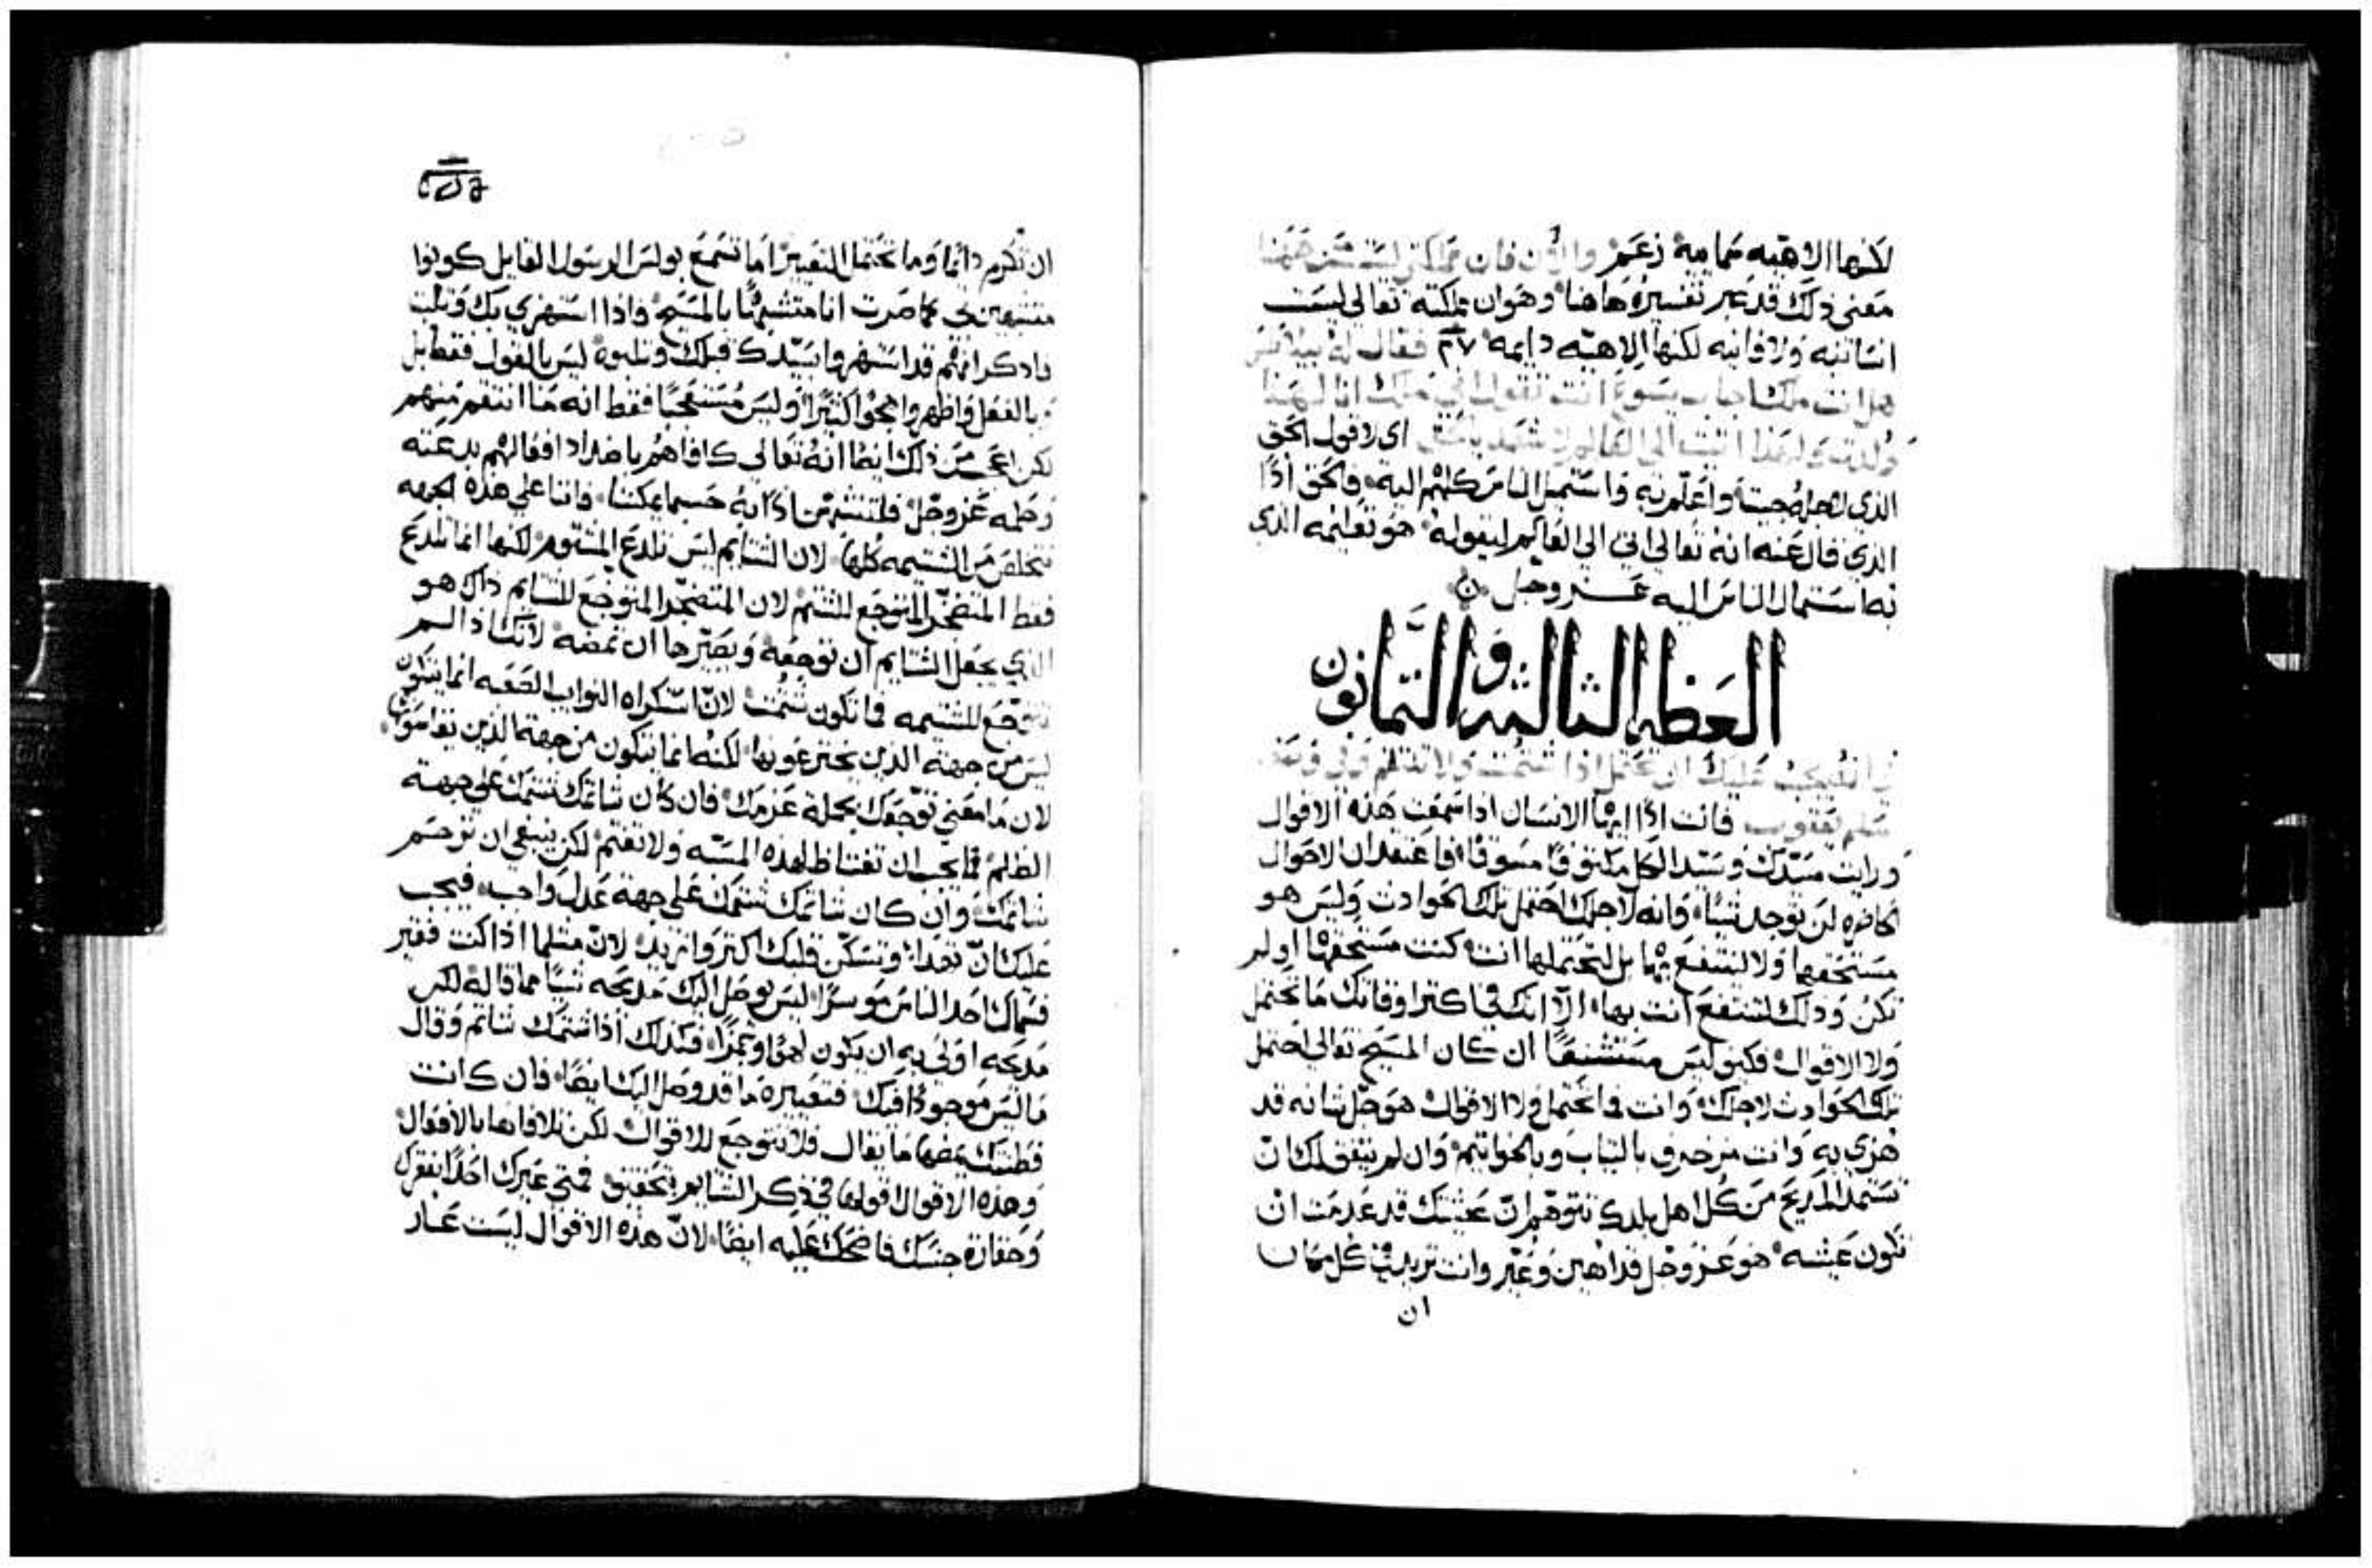 لكنها الاهيه سمايية زعم والان فان مملكتي ليست من ههنا
معنى ذلك قد عبر تفسيره هاهنا وهوان مملكته تعالى ليست
انسانيه ولا فانيه لكنها الاهيه دايمه فقال له بيلاطس
هل انت ملك اجاب يسوع انت تقول اني ملك انا لهذا
ولدت ولهذا اتيت الى العالم لاشهد بالحق اى لاقول الحق
الذى لاجله جيت واعلم به واستميل الناس كلهم اليه والحق اذًا
الذي قال عنه انه تعالى اتى الى العالم ليقوله هو تعليمه الذى
به استمال الناس اليه عز وجل
العظه الثالثه والثمانون
في انه يجب عليك ان تحتمل اذا شتمت ولا تظلم
فانت اذًا ايها الانسان اذا سمعت هذه الاقوال
ورايت سيدك وسيد الكل مكتوفًا مسوقًا فاعتقد ان الاحوال
الحاضره لن توجد شيًا وانه لاجلك احتمل تلك الحوادث وليس هو
مستحقها ولا لينتفع بها بل لتحتملها انت كنت مستحقها او لم
تكن وذلك لتنتفع انت بها الا انك في اكثر اوقاتك ما تحتمل
ولا الاقوال فكيف ليس مستشنعًا ان كان المسيح تعالى احتمل
تلك الحوادث لاجلك وانت فما تحتمل ولا الاقوال هو جل شانه قد
هزى به وانت مزخرف بالثياب وبالخواتيم وان لم يتفق لك ان
تستمد المديح من كل اهل بلدك تتوهم ان عيشتك قد عدمت ان
تكون عيشه هو عز وجل قد اهين وعير وانت تريد في كل مكان
ان
ان تكرم دايمًا وما تحتمل التعيير اما تسمع بولس الرسول القايل كونوا
متشبهين بي كما صرت انا متشبهًا بالمسيح واذا استهزي بك وثلبت
فاذكر انهم قد استهزوا بسيدك قبلك وثلبوه ليس بالقول فقط بل
وبالفعل واظهروا هجوًا كثيرًا وليس مستعجبًا فقط انه ما انتقم منهم
لكن اعجب من ذلك ايضًا انه تعالى كافاهم باضداد افعالهم بدعته
وحلمه عز وجل فلنتشبهن اذًا به حسبما يمكننا فاننا على هذه الجهه
نتخلص من الشتيمه كلها لان الشتايم ليس تلدع المشتوم لكنها انما تلدع
فقط المتضجر المتوجع للشتم لان المتضجر المتوجع للشتايم ذاك هو
الذي يجعل الشتايم ان توجعه ويصيرها ان تمضه لانك اذا لم
تتوجع للشتيمه فما تكون شتمت لان استكراه النوايب الصعبه انما يتكون
ليس من جهة الذين يخترعونها لكنه انما يتكون من جهة الذين يقاسونها
لان ما معنى توجعك بجملة عزمك فان كان شاتمك شتمك على جهة
الظلم فما يجب ان تغتاظ لهذه المسبه ولا تغتم لكن ينبغي ان ترحم
شاتمك وان كان شاتمك شتمك على جهة عدل واجب فيجب
عليك ان تهدا وتسكن قلبك اكثر وازيد لان مثلما اذا كنت فقير
فسماك احد الناس موسرًا ليس يوصل اليك مديحه شيًا مما قاله لكن
مديحه اولى به ان يكون لهوًا وهزًا فكذلك اذا شتمك شاتم وقال
ما ليس موجودًا فيك فتعييره ما قد وصل اليك ايضًا فان كانت
فطنتك يمضها ما يقال فلا تتوجع للاقوال لكن تلافاها بالافعال
وهذه الاقوال اقولها في ذكر الشتايم بتحقيق فمتى عيرك احدًا بفقرك
وحقارة جنسك فاضحك عليه ايضًا لان هذه الاقوال ليست عار